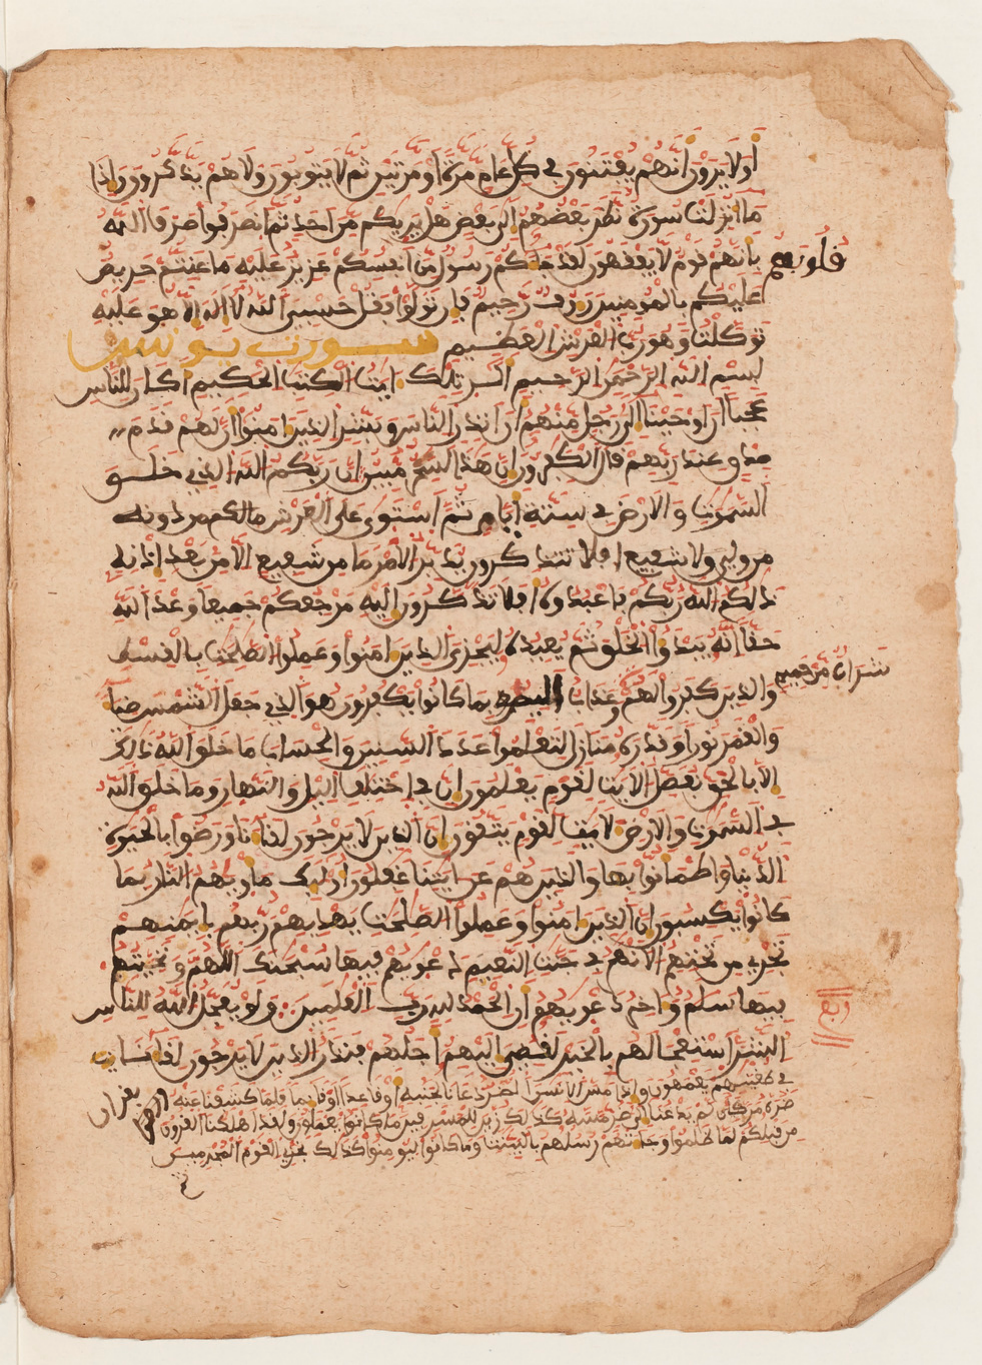 أولا يرون أنهم يفتنون في كل عام مرة أو مرتين ثم لا يتوبون ولا هم يذكرون وإذا
ما أنزلت سورة نظر بعضهم إلى بعض هل يريكم من أحد ثم انصرفوا صرف الله
قلوبهم
بأنهم قوم لا يفقهون لقد جاءكم رسول من أنفسكم عزيز عليه ما عنتم حريص
عليكم بالمومنين روف رحيم فإن تولوا فقل حسبي الله لا إله إلا هو عليه
توكلت وهو رب العرش العظيم سورة يونس
بسم الله الرحمن الرحيم الر تلك ايت الكتب الحكيم أكان للناس
عجبا أن أوحينا إلى رجل منهم أن أنذر الناس وبشر الذين امنوا أن لهم قدم
صدق عند ربهم قال الكفرون إن هذا لسحر مبين إن ربكم الله الذي خلق
السموت والارض في ستة أيام ثم استوى على العرش مالكم من دونه
من ولي ولا شفيع افلا تتذكرون يدبر الأمر ما من شفيع الا من بعد إذنه
ذلكم الله ربكم فاعبدوه افلا تذكرون إليه مرجعكم جميعا وعد الله
حقا إنه يبدؤا الخلق ثم يعيده ليجزي الذين امنوا وعملوا الصلحت بالقسط
شراب من حميم
والذين كفروا لهم وعذاب أليم بما كانوا يكفرون هو الذي جعل الشمس ضياء
والقمر نورا وقدره منازل لتعلموا عدد السنين والحساب ما خلق الله ذلك
إلا بالحق نفصل الايت لقوم يعلمون إن في اختلف اليل والنهار وما خلق الله
في السموت والارض لايت لقوم يتقون إن الذين لا يرجون لقاءنا ورضوا بالحيوة
الدنيا واطمأنوا بها والذين هم عن ايتنا غفلون أوليك ماويهم النار بما
كانوا يكسبون إن الذين امنوا وعملوا الصلحت يهديهم ربهم بإيمنهم
تجري من تحتهم الانهر في جنت النعيم دعويهم فيها سبحنك اللهم وتحيتهم
فيها سلم واخر دعويهم أن الحمد لله رب العلمين ولو يعجل الله للناس
الشر استعجالهم بالخير لقضي إليهم أجلهم فنذر الذين لا يرجون لقاءنا
في طغينهم يعمهون وإذا مس الانسن الضر دعانا لجنبه أو قاعدا أو قايما فلما كشفنا عنه
ضره مر كأن لم يدعنا إلى ضر مسه كذلك زين للمسرفين ما كانوا يعملون ولقد اهلكنا القرون
من قبلكم لما ظلموا وجاءتهم رسلهم بالبينت وما كانوا ليومنوا كذلك نجزي القوم المجرمين